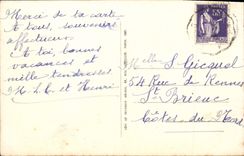 Merci de ta carte
A tous, souvenirs
affectueux
A toi, bonnes
vacances et
mille tendresses
M. L. C. et Henri
Melle S. Gicquel
54 Rue de Rennes
St Brieuc
Côtes du Nord